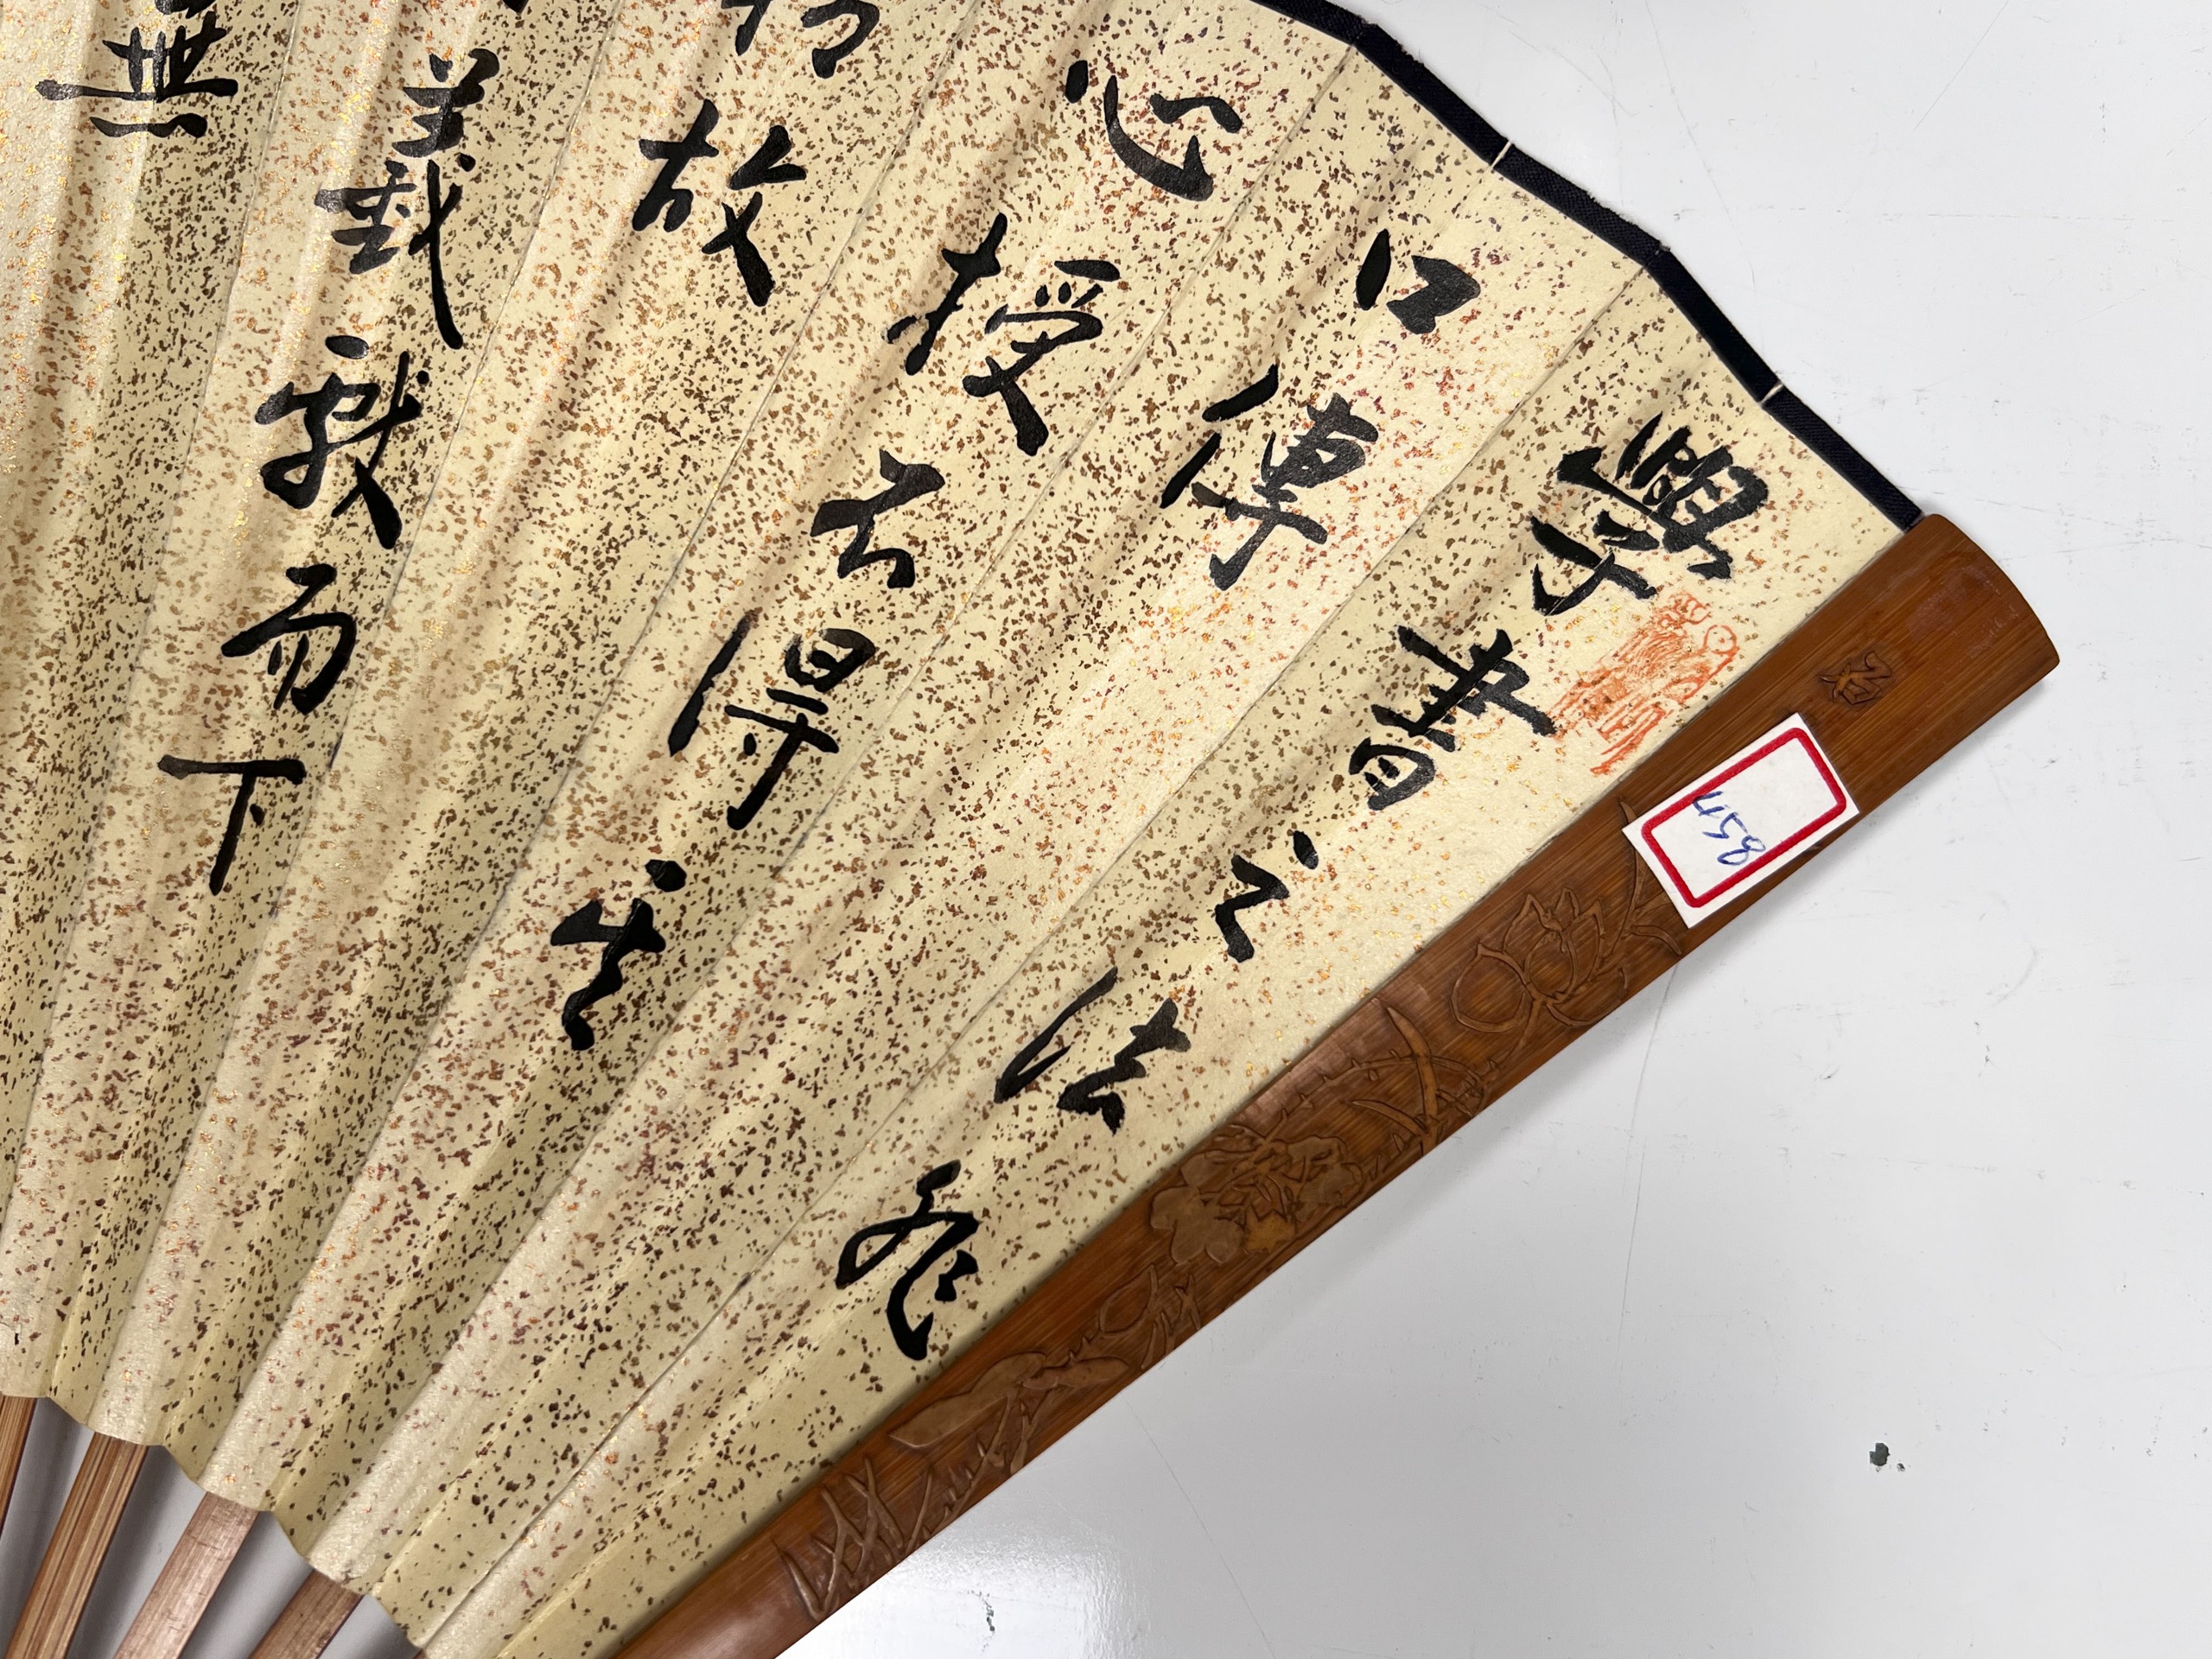 學書之法非
口傳
心授不得其
故
羲獻而下
無
458